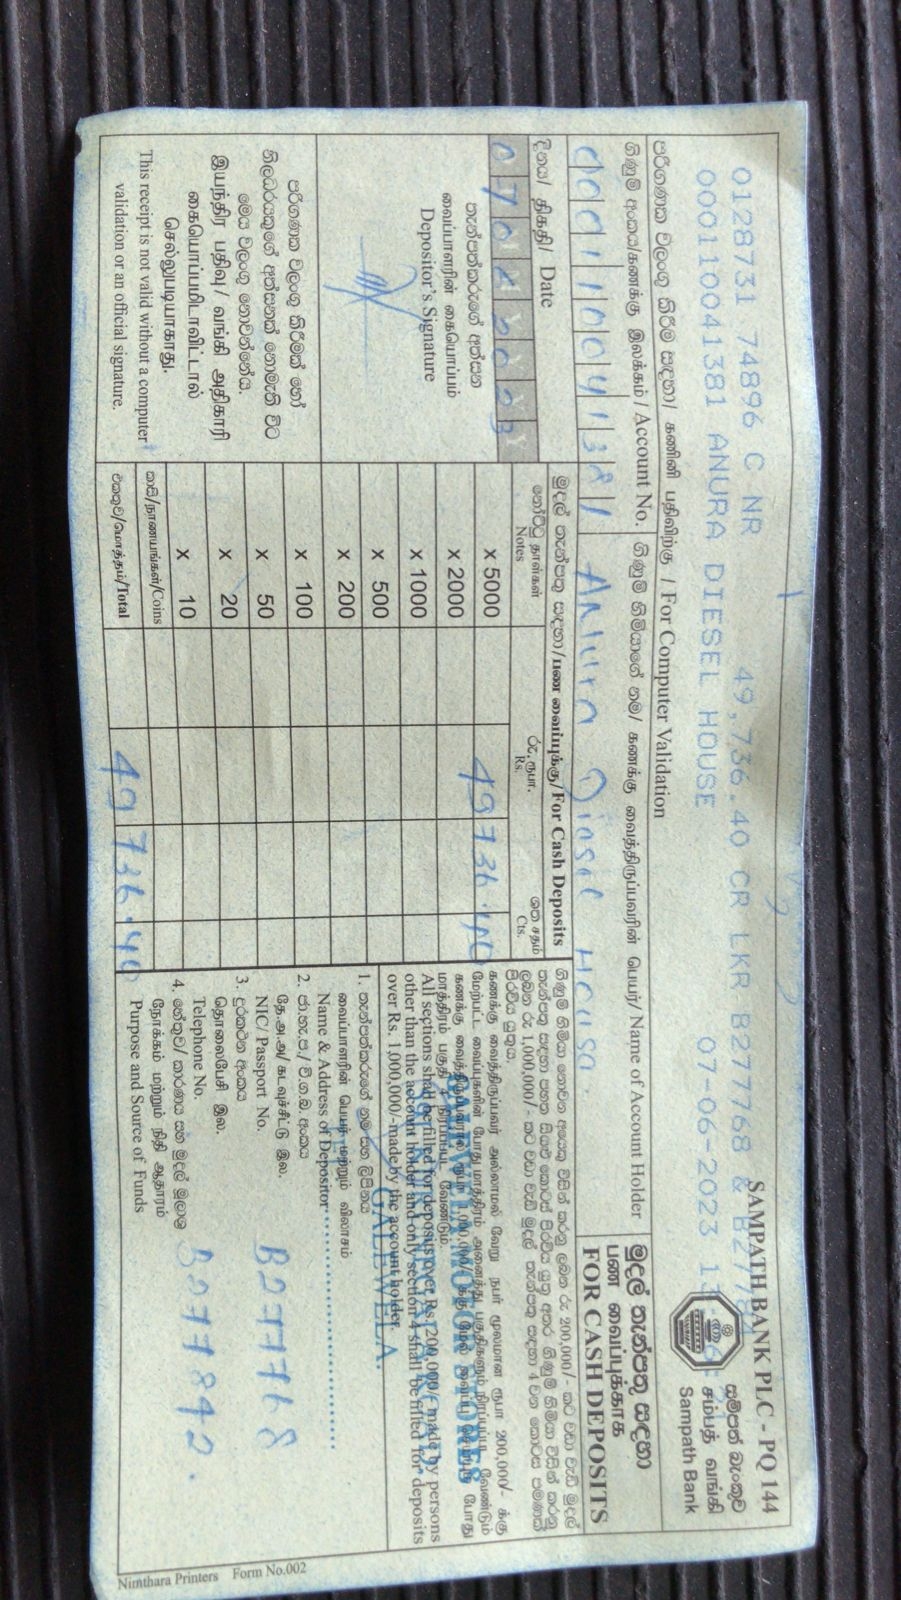 SAMPATH BANK PLC - PQ 144
0128731 74896 C NR 49,736.40 CR LKR B277768 &
000110041381 ANURA DIESEL HOUSE 07-06-2023
සම්පත් බැංකුව
சம்பத் வங்கி
Sampath Bank
පරිගණක වලංගු කිරීම සඳහා/ கணினி பதிவிற்கு / For Computer Validation
ගිණුම් අංකය/கணக்கு இலக்கம்/ Account No.
ගිණුම් හිමියාගේ නම/ கணக்கு வைத்திருப்பவரின் பெயர்/ Name of Account Holder
000110041381
Anura Diesel House.
මුදල් තැන්පතු සඳහා
பண வைப்புக்காக
FOR CASH DEPOSITS
දිනය/ திகதி/ Date
තැන්පත්කරුගේ අත්සන
வைப்பாளரின் கையொப்பம்
Depositor's Signature
මුදල් තැන්පතු සඳහා/பண வைப்புக்கு/For Cash Deposits
නෝට්ටු தாள்கள்
Notes
රු. ரூபா.
Rs.
ශත சதம்
Cts.
x 5000 49736.40
x 2000
x 1000
x 500
x 200
x 100
x 50
x 20
x 10
කාසි/நாணயங்கள்/Coins
එකතුව/மொத்தம்/Total 49736.40
පරිගණක වලංගු කිරීමක් හෝ
නිලධරයකුගේ අත්සනක් නොමැති විට
මෙය වලංගු නොවන්නේය.
இயந்திர பதிவு/ வங்கி அதிகாரி
கையொப்பமிடாவிட்டால்
செல்லுபடியாகாது.
This receipt is not valid without a computer
validation or an official signature.
All sections shall be filled for deposits over Rs. 200,000/- made by persons
other than the account holder and only section 4 shall be filled for deposits
over Rs. 1,000,000/- made by the account holder.
GALEWELA MOTOR STORES
GALEWELA.
1. තැන්පත්කරුගේ නම සහ ලිපිනය
வைப்பாளரின் பெயர் மற்றும் விலாசம்
Name & Address of Depositor
2. ජා.හැ.ප./ වි.ග.බ. අංකය
தே.அ.அ/ கடவுச்சீட்டு இல.
NIC/ Passport No. B277768
3. දුරකථන අංකය
தொலைபேசி இல.
Telephone No. B277842.
4. හේතුව/ කාරණය සහ මුදල් මූලාශ්‍ර
நோக்கம் மற்றும் நிதி ஆதாரம்
Purpose and Source of Funds
Nimthara Printers Form No.002